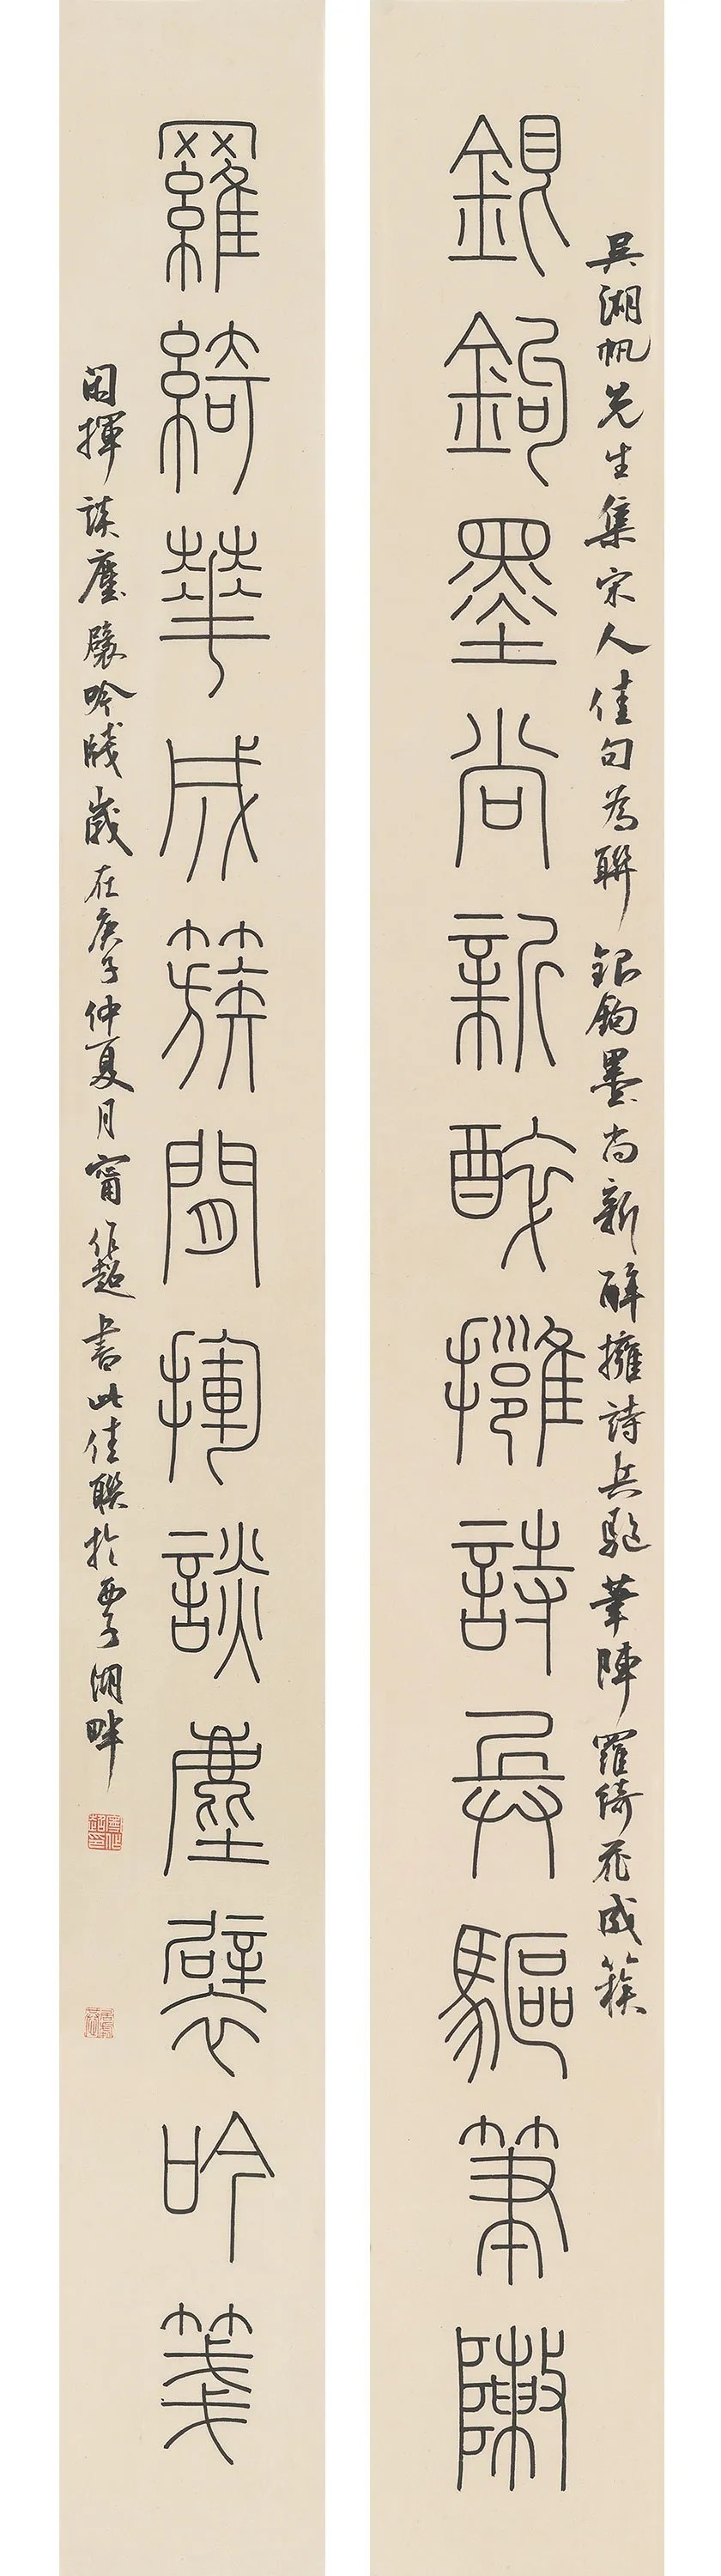 吴湖帆先生集宋人佳句為聯銀鉤墨尚新醉擁詩兵驅筆陣羅綺花成簇
銀鉤墨尚新醉擁詩兵驅筆陣
羅綺華成簇閒揮談麈襞吟箋
閑揮談麈襞吟牋歲在庚子仲夏月甯作超書此佳聯於西子湖畔